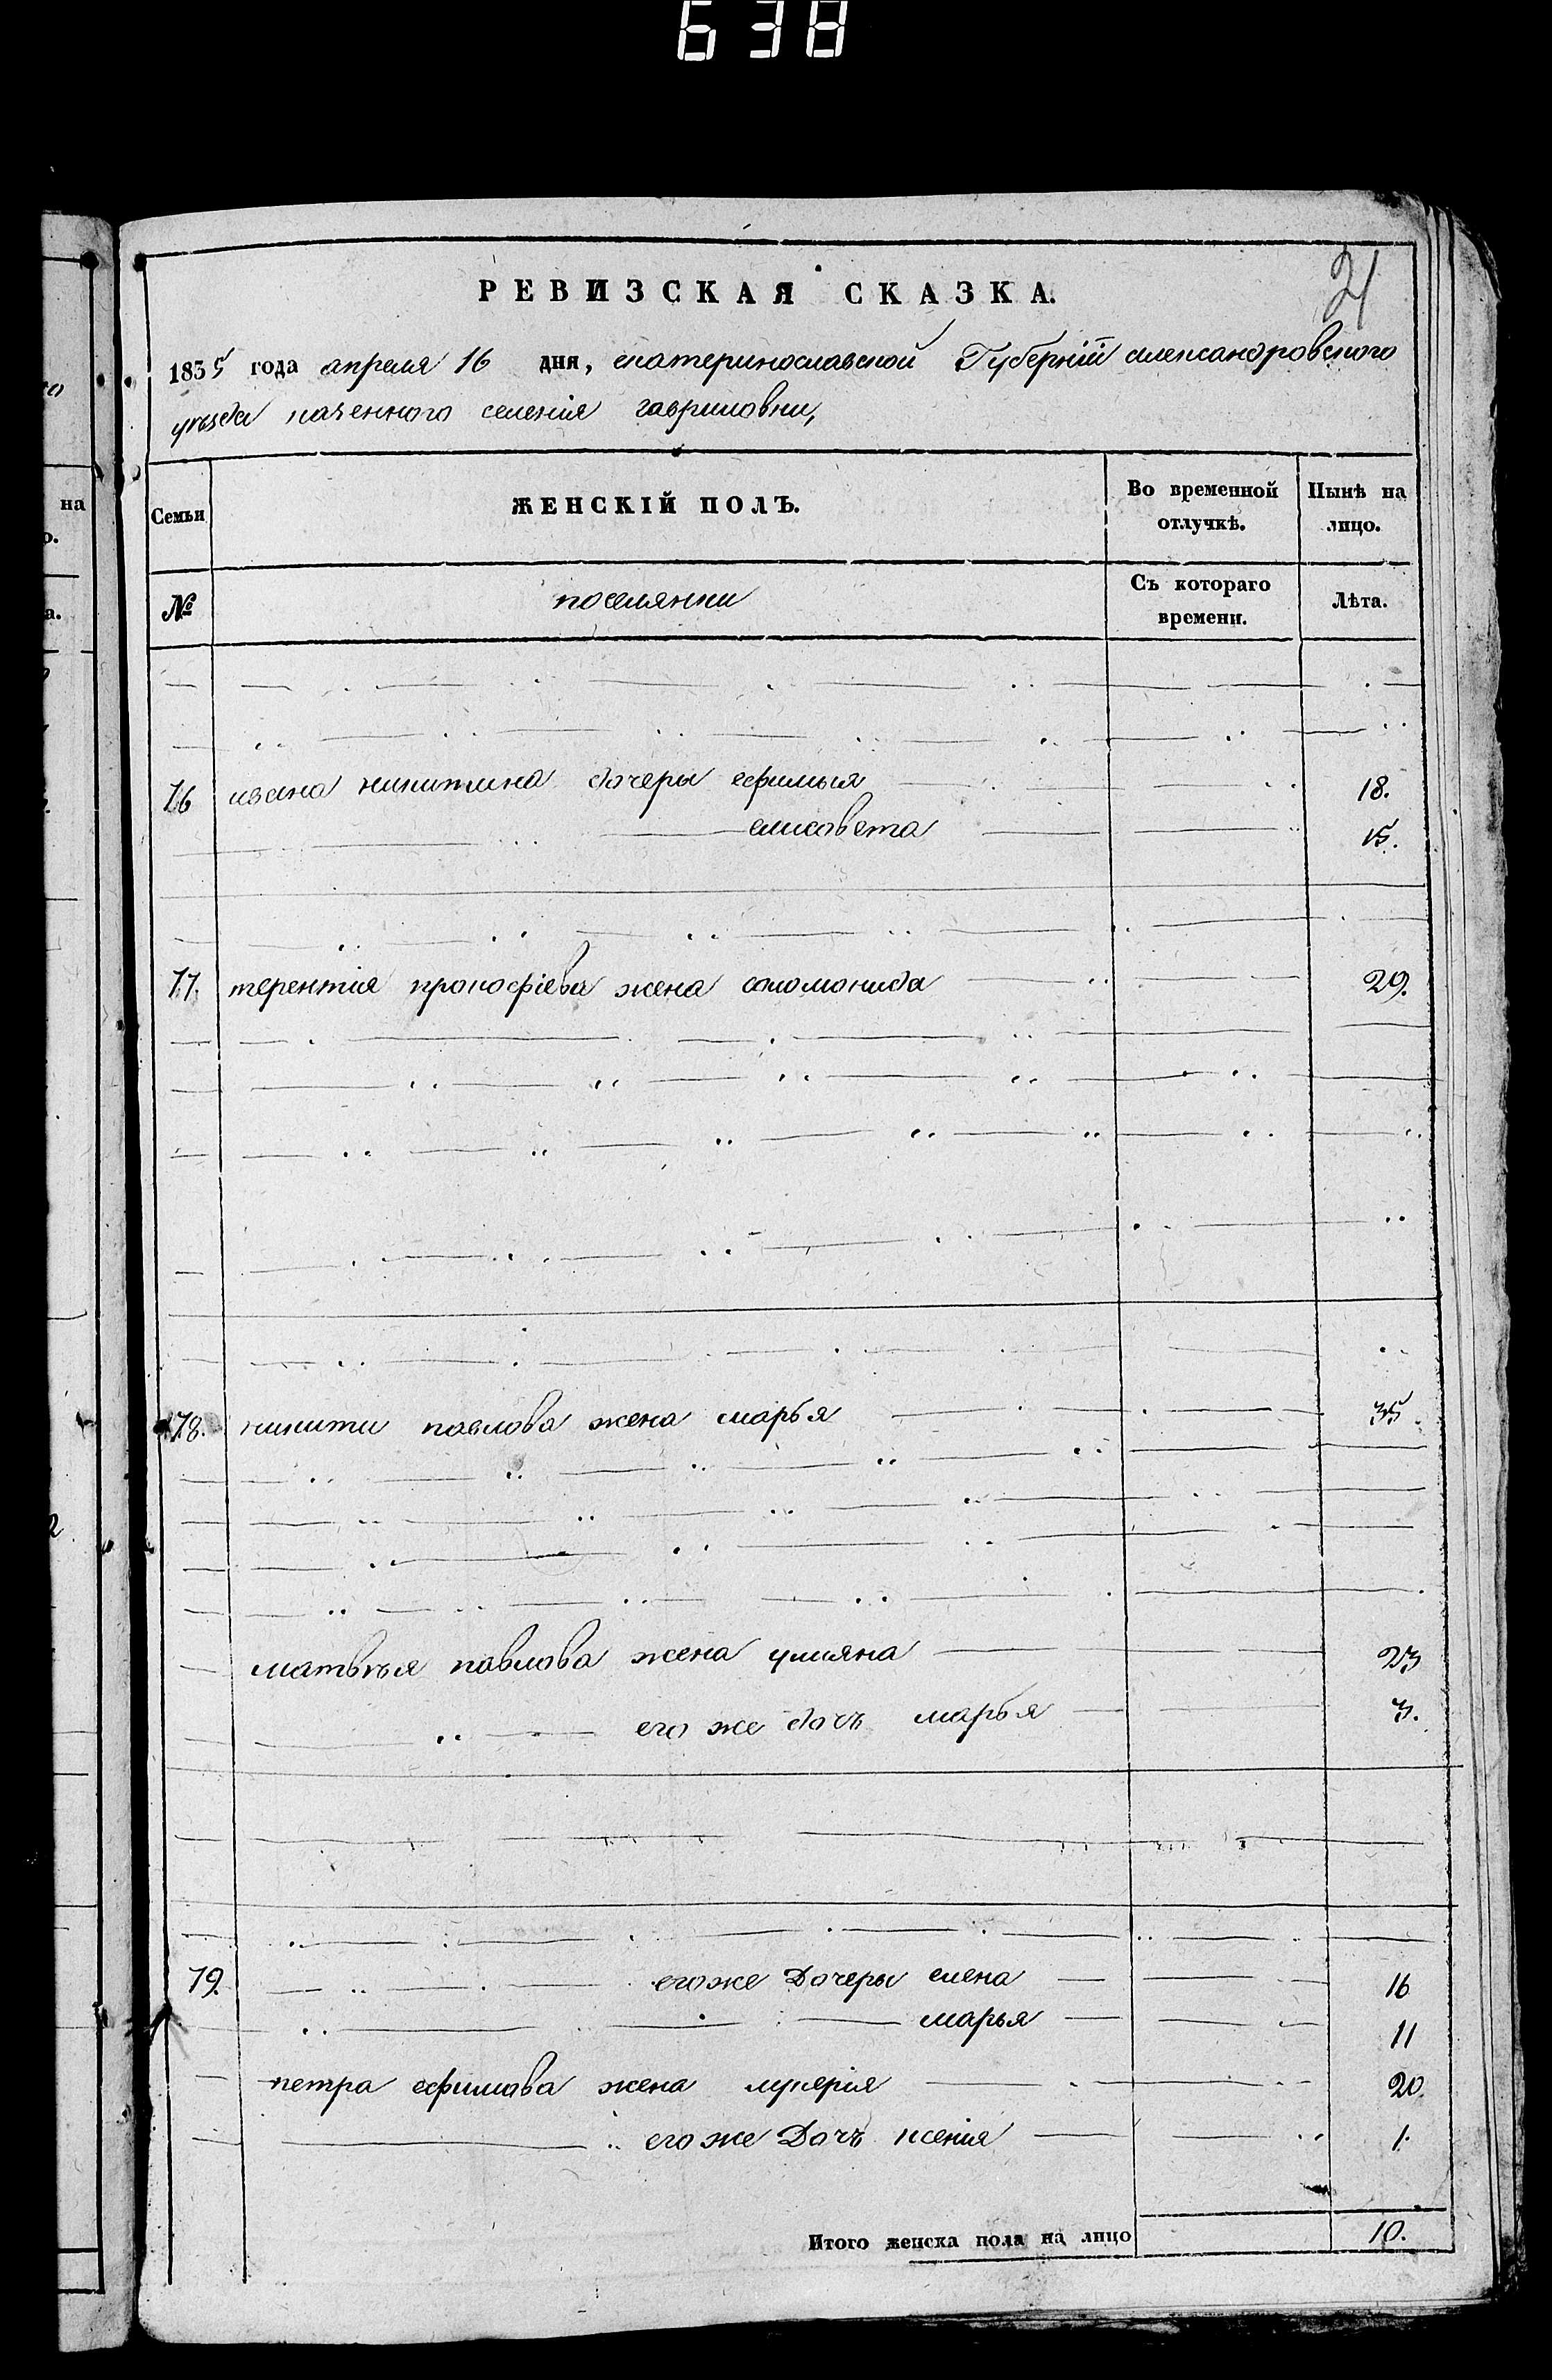 638
21
РЕВИЗСКАЯ СКАЗКА.
1835 года апреля 16 дня, екатеринославской Губерніи александровского
уезда казенного селенія гавриловки,
Семьи
ЖЕНСКІЙ ПОЛЪ.
Во временной отлучкѣ.
Нынѣ на лицо.
№
поселянки
Съ котораго времени.
Лѣта.
16 ивана никитина дочеры ефимья 18.
елисовета 15.
17. терентія прокофіева жена соломонида 29.
18. никиты павлова жена марья 35.
матвѣя павлова жена улияна 23
его же дочъ марья 3.
19. егоже Дочеры елена 16
марья 11
петра ефимова жена лукерія 20.
егоже Дочъ ксенія 1.
Итого женска пола на лицо 10.
на